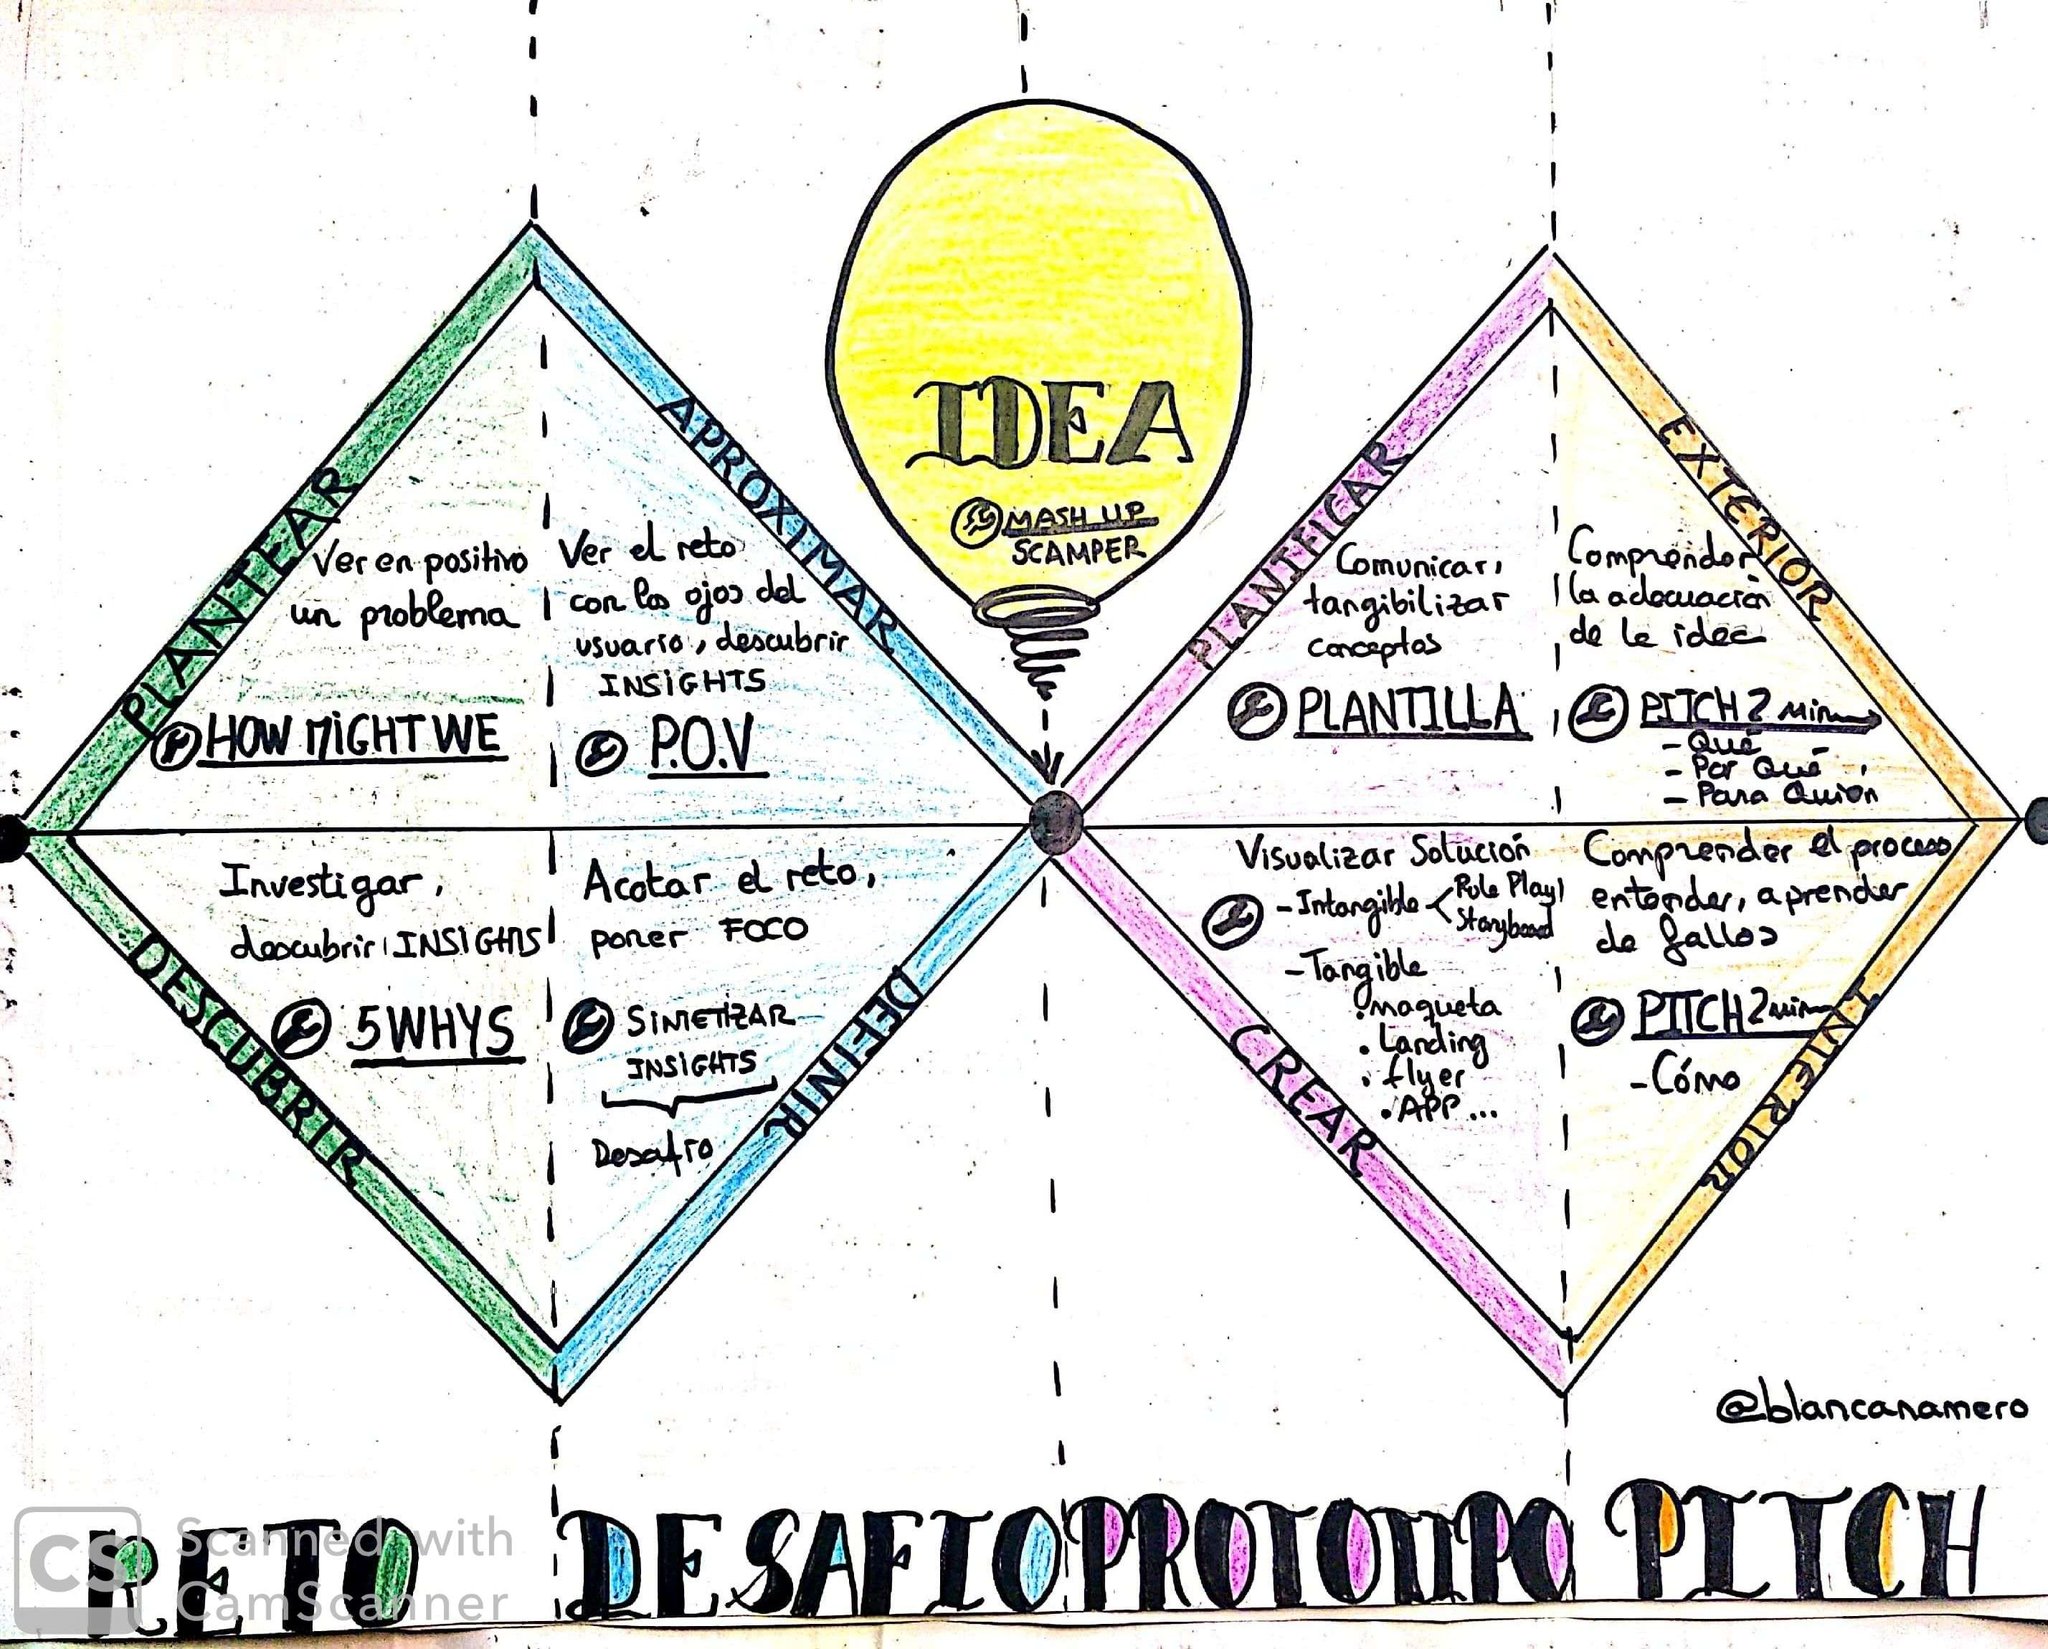 IDEA
MASH UP
SCAMPER
PLANTEAR
Ver en positivo
un problema
HOW MiGHT WE
APROXIMAR
Ver el reto
con los ojos del
usuario, descubrir
INSIGHTS
P.O.V
DESCUBRIR
Investigar,
descubrir INSIGHTS
5 WHYS
DEFINIR
Acotar el reto,
poner FOCO
SINTETIZAR
INSIGHTS
Desafío
PLANTIFICAR
Comunicar,
tangibilizar
conceptos
PLANTILLA
EXTERIOR
Comprender
la adecuación
de la idea
PITCH 2 min
- Qué
- Por Qué
- Para Quién
CREAR
Visualizar Solución
- Intangible < Role Play
Storyboard
- Tangible
• maqueta
• Landing
• flyer
• APP...
INTERIOR
Comprender el proceso
entender, aprender
de fallos
PITCH 2 min
- Cómo
@blancanamero
RETO DESAFIO PROTOTIPO PITCH
CS Scanned with
CamScanner